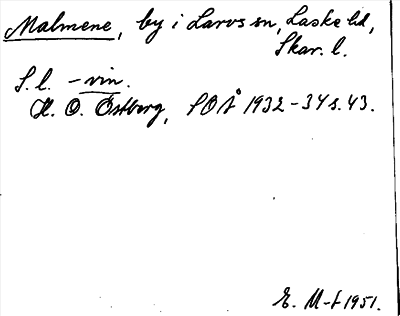 Malmene, by i Larvs sn, Laske hd,
Skar. l.
S. l. -vin.
H. O. Östberg, SOÅ 1932-34 s. 43.
E. M-t 1951.